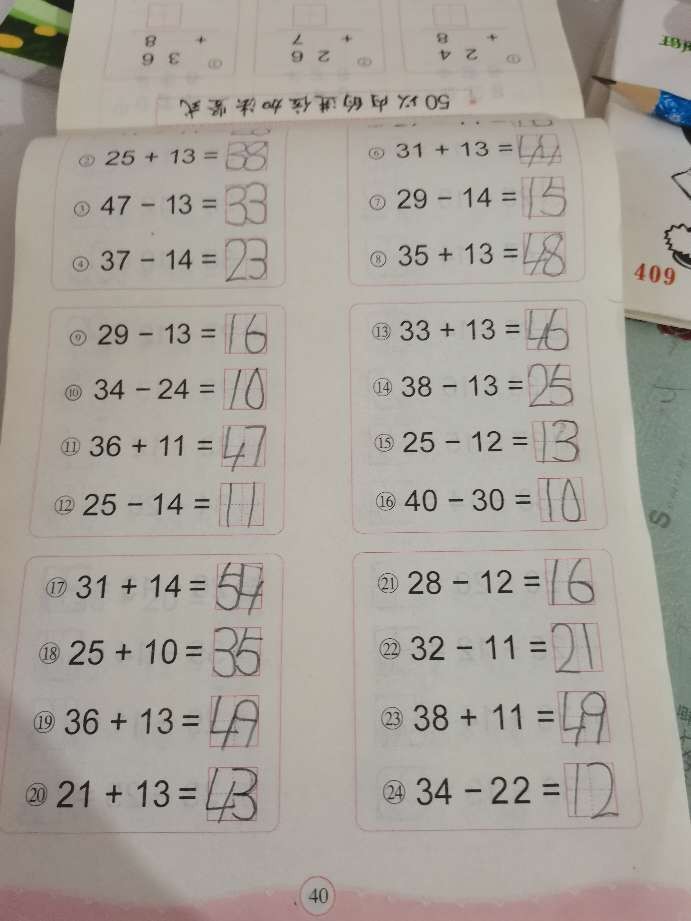 50以内的进位加法竖式
① 24
+ 8
② 26
+ 7
③ 36
+ 8
② 25 + 13 = 38
③ 47 − 13 = 33
④ 37 − 14 = 23
⑥ 31 + 13 = 44
⑦ 29 − 14 = 15
⑧ 35 + 13 = 48
⑨ 29 − 13 = 16
⑩ 34 − 24 = 10
⑪ 36 + 11 = 47
⑫ 25 − 14 = 11
⑬ 33 + 13 = 46
⑭ 38 − 13 = 25
⑮ 25 − 12 = 13
⑯ 40 − 30 = 10
⑰ 31 + 14 = 54
⑱ 25 + 10 = 35
⑲ 36 + 13 = 49
⑳ 21 + 13 = 43
㉑ 28 − 12 = 16
㉒ 32 − 11 = 21
㉓ 38 + 11 = 49
㉔ 34 − 22 = 12
40
409